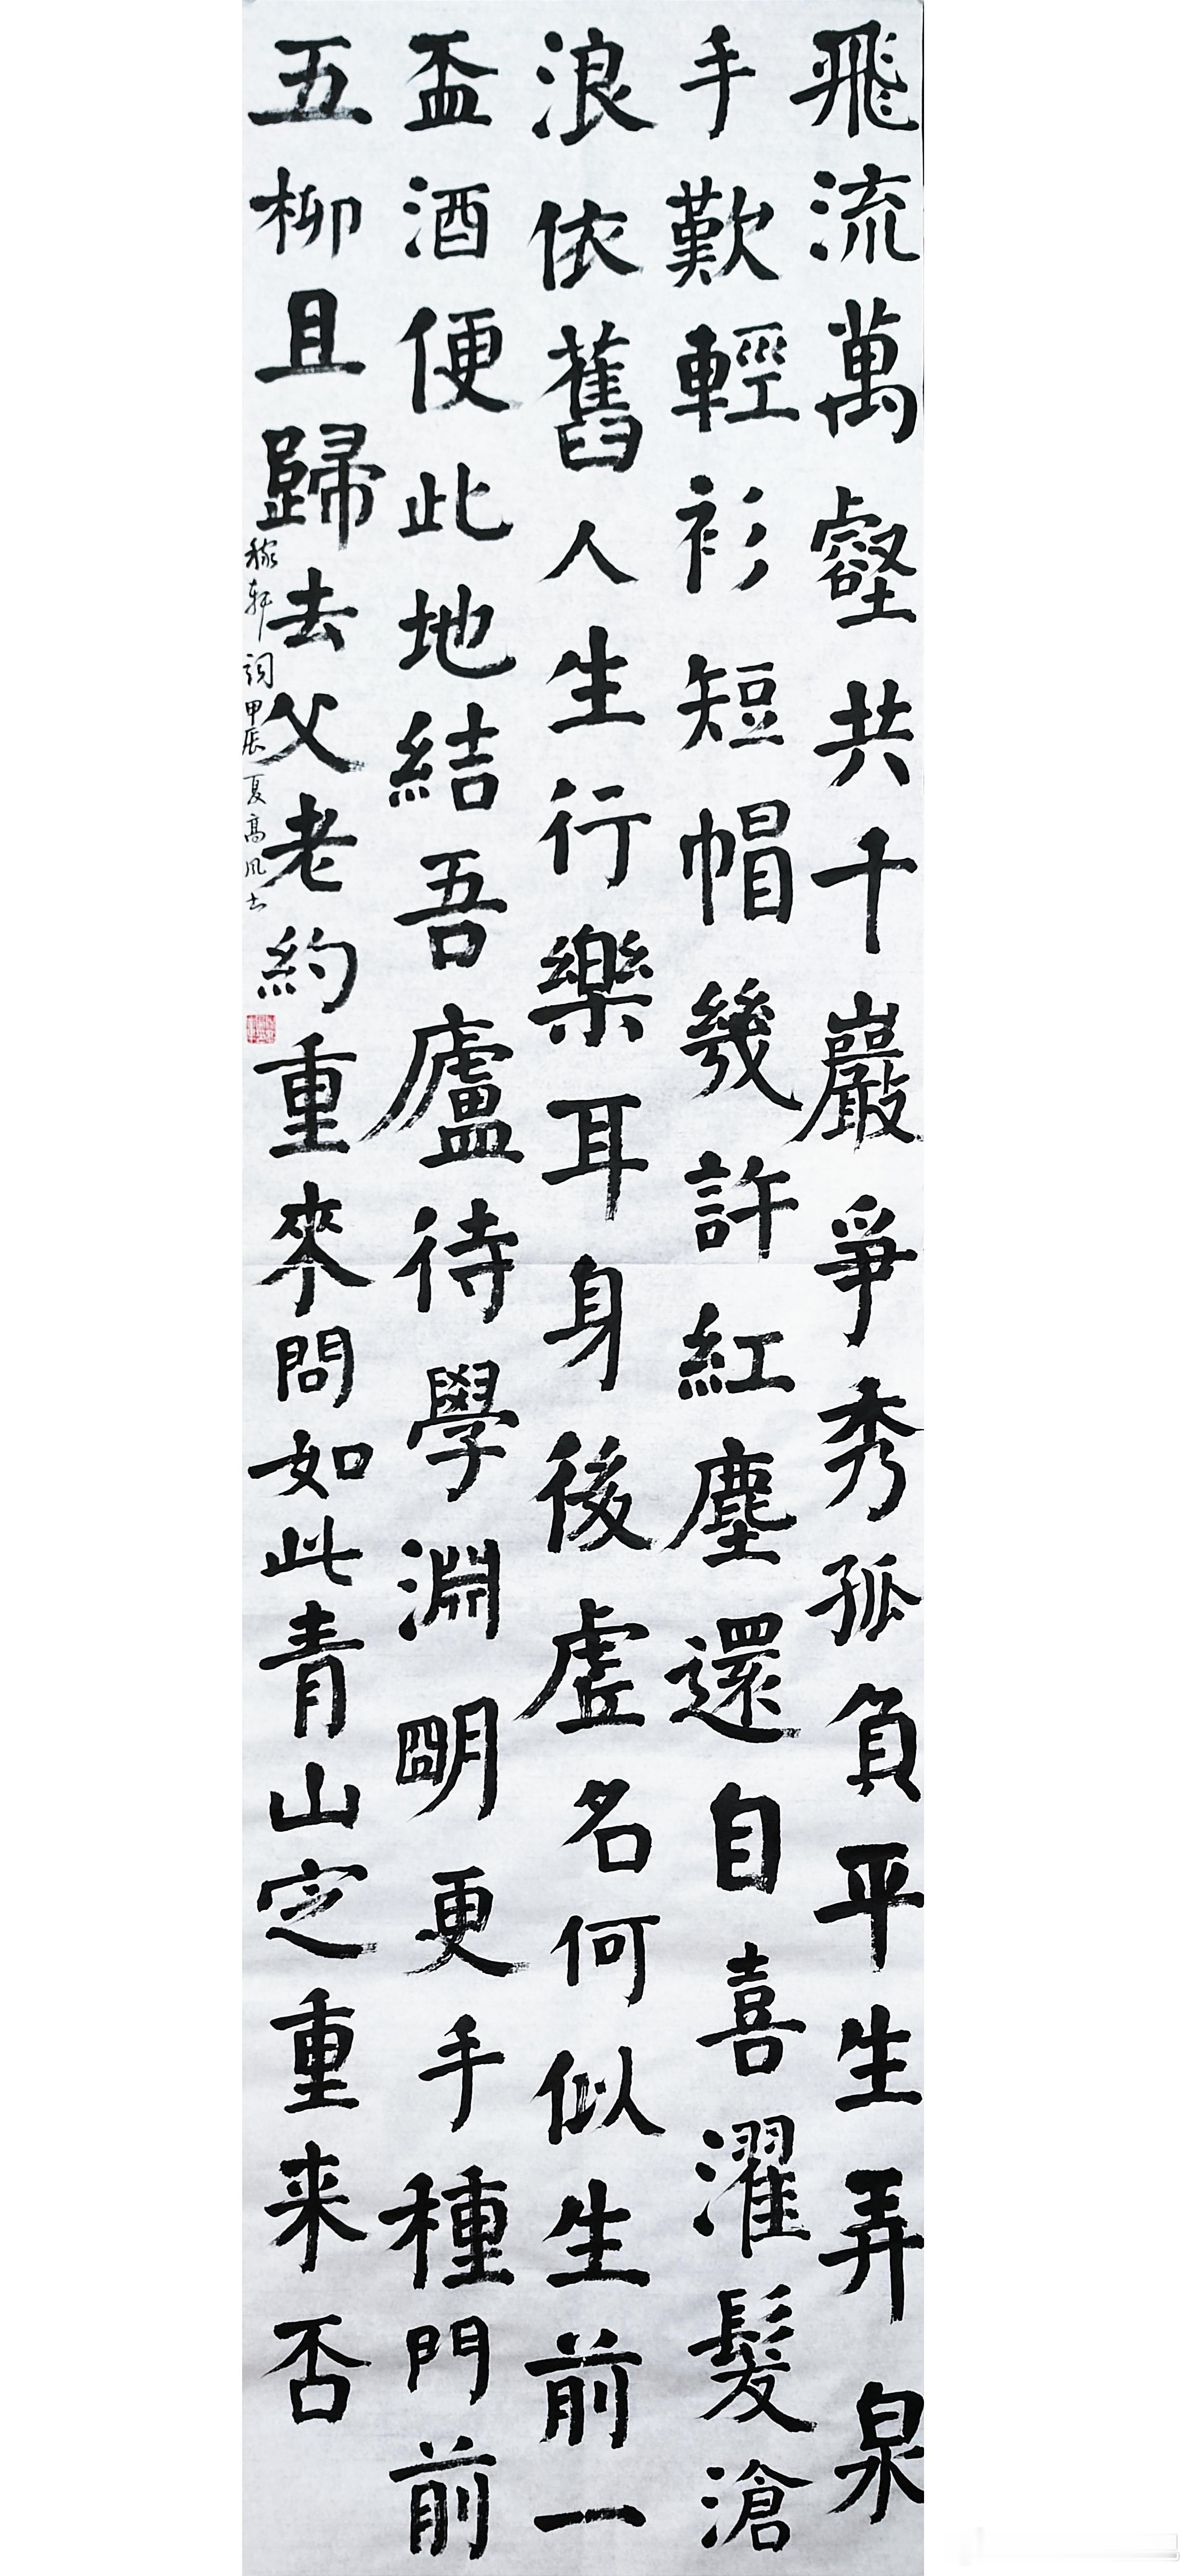 飛流萬壑共千巖爭秀孤負平生弄泉
手歎輕衫短帽幾許紅塵還自喜濯髮滄
浪依舊人生行樂耳身後虛名何似生前一
盃酒便此地結吾廬待學淵明更手種門前
五柳且歸去父老約重來問如此青山定重来否
稼軒詞甲辰夏高风书